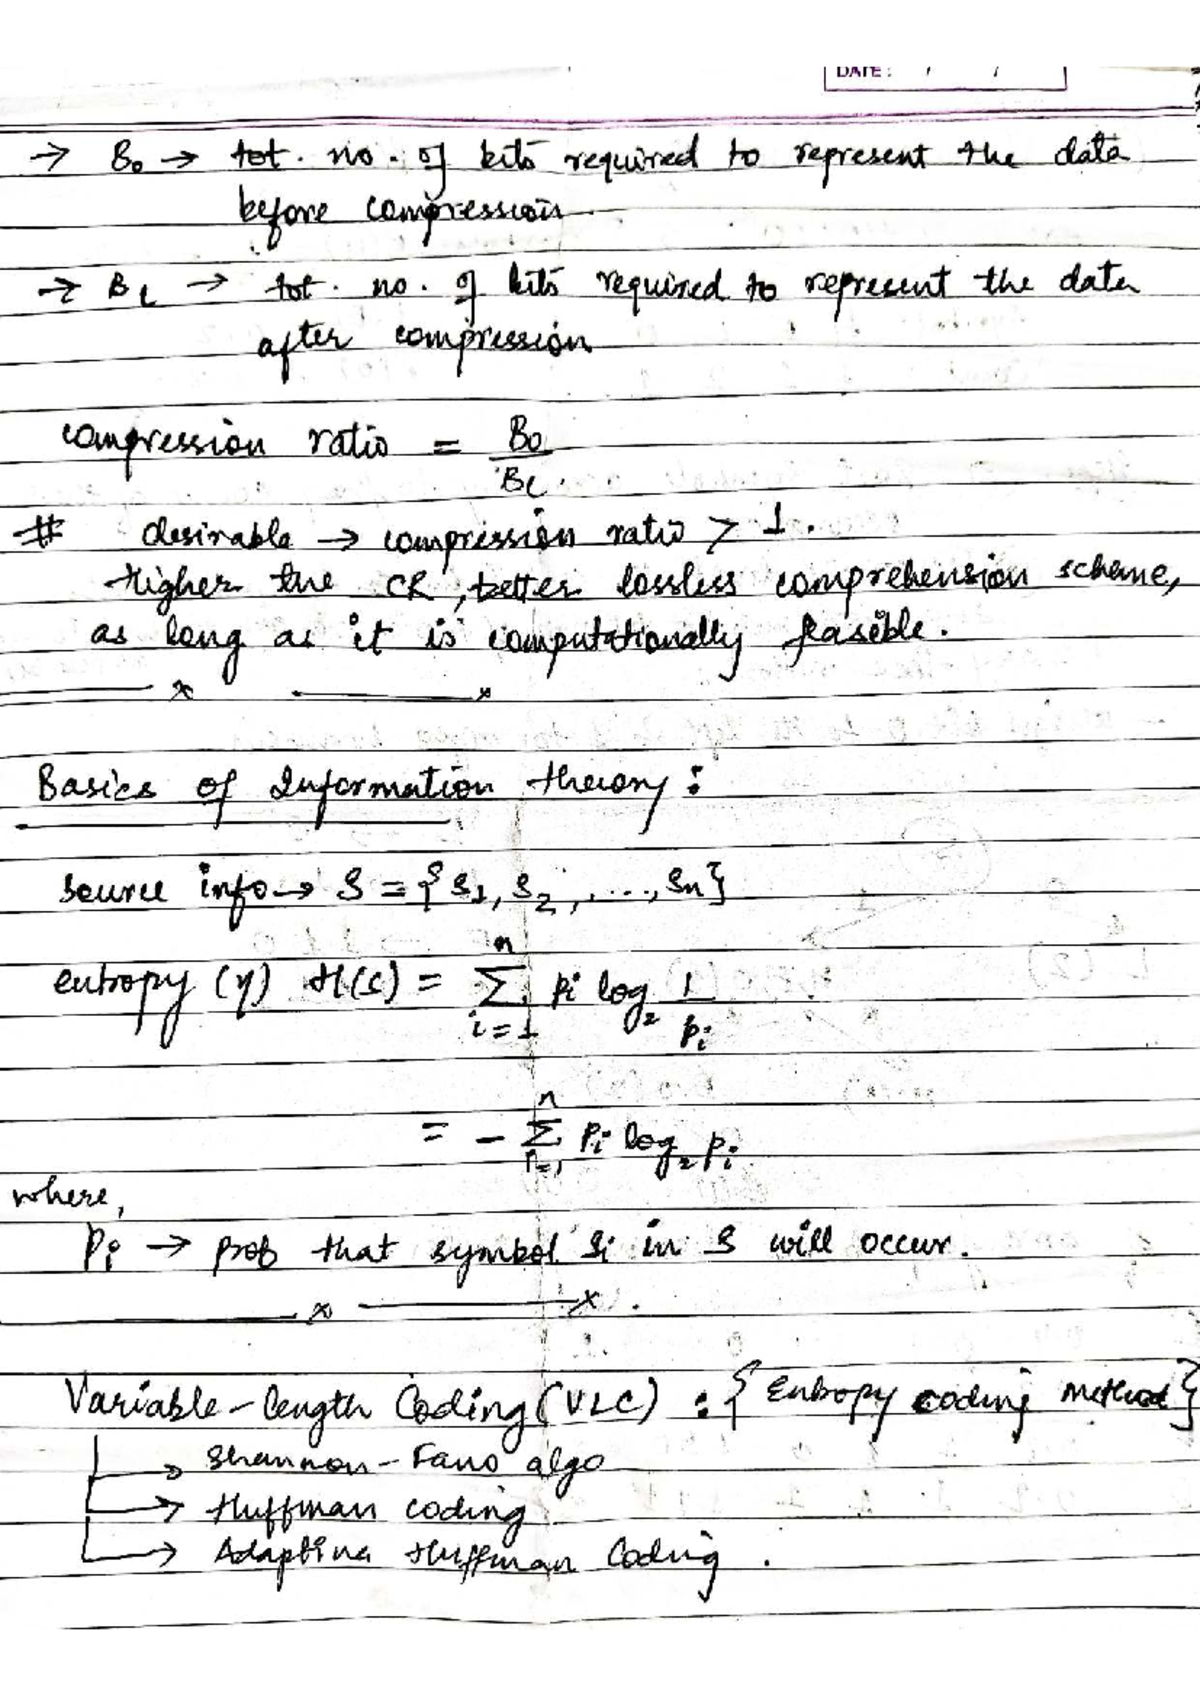 DATE : / /
→ B₀ → tot. no. of bits required to represent the data
before compression
→ B₁ → tot. no. of bits required to represent the data
after compression
compression ratio = B₀ / B₁
# desirable → compression ratio > 1.
Higher the CR, better lossless comprehension scheme,
as long as it is computationally feasible.
Basics of Information theory :
source info → S = {S₁, S₂, ..., Sn}
entropy (η) H(S) = Σ_{i=1}^{n} pi log₂ 1/pi
= - Σ_{i=1}^{n} pi log₂ pi
where,
Pi → prob that symbol Si in S will occur.
Variable-length Coding (VLC) : {Entropy coding method}
→ Shannon-Fano algo
→ Huffman coding
→ Adaptive Huffman Coding.